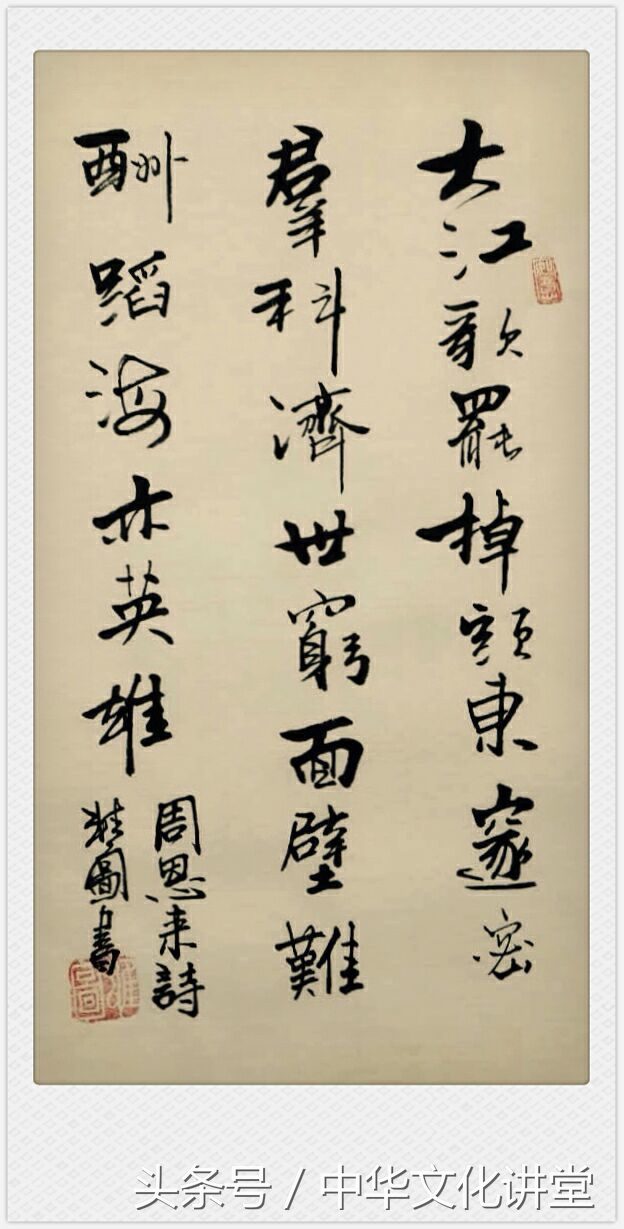 大江歌罷掉頭東邃密
羣科濟世窮面壁難
酬蹈海亦英雄
周恩来詩
圖書
头条号 / 中华文化讲堂